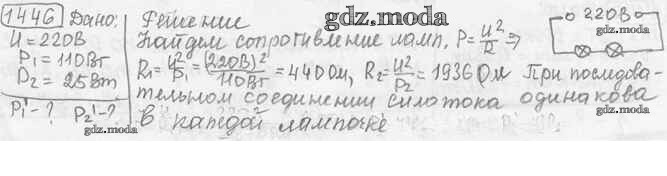 1446 Дано: Решение
gdz.moda
U = 220В
P₁ = 110Вт
P₂ = 25Вт
P₁' - ? P₂' - ?
gdz.moda
Найдем сопротивление ламп, P = U²/R ⇒
R₁ = U²/P₁ = (220В)²/110Вт = 440 Ом, R₂ = U²/P₂ = 1936 Ом При последова-
тельном соединении сила тока одинакова
в каждой лампочке
gdz.moda
220В
gdz.moda